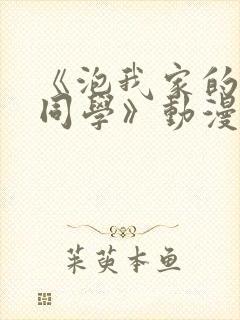 《泡我家的
同學》動漫
茱萸本鱼